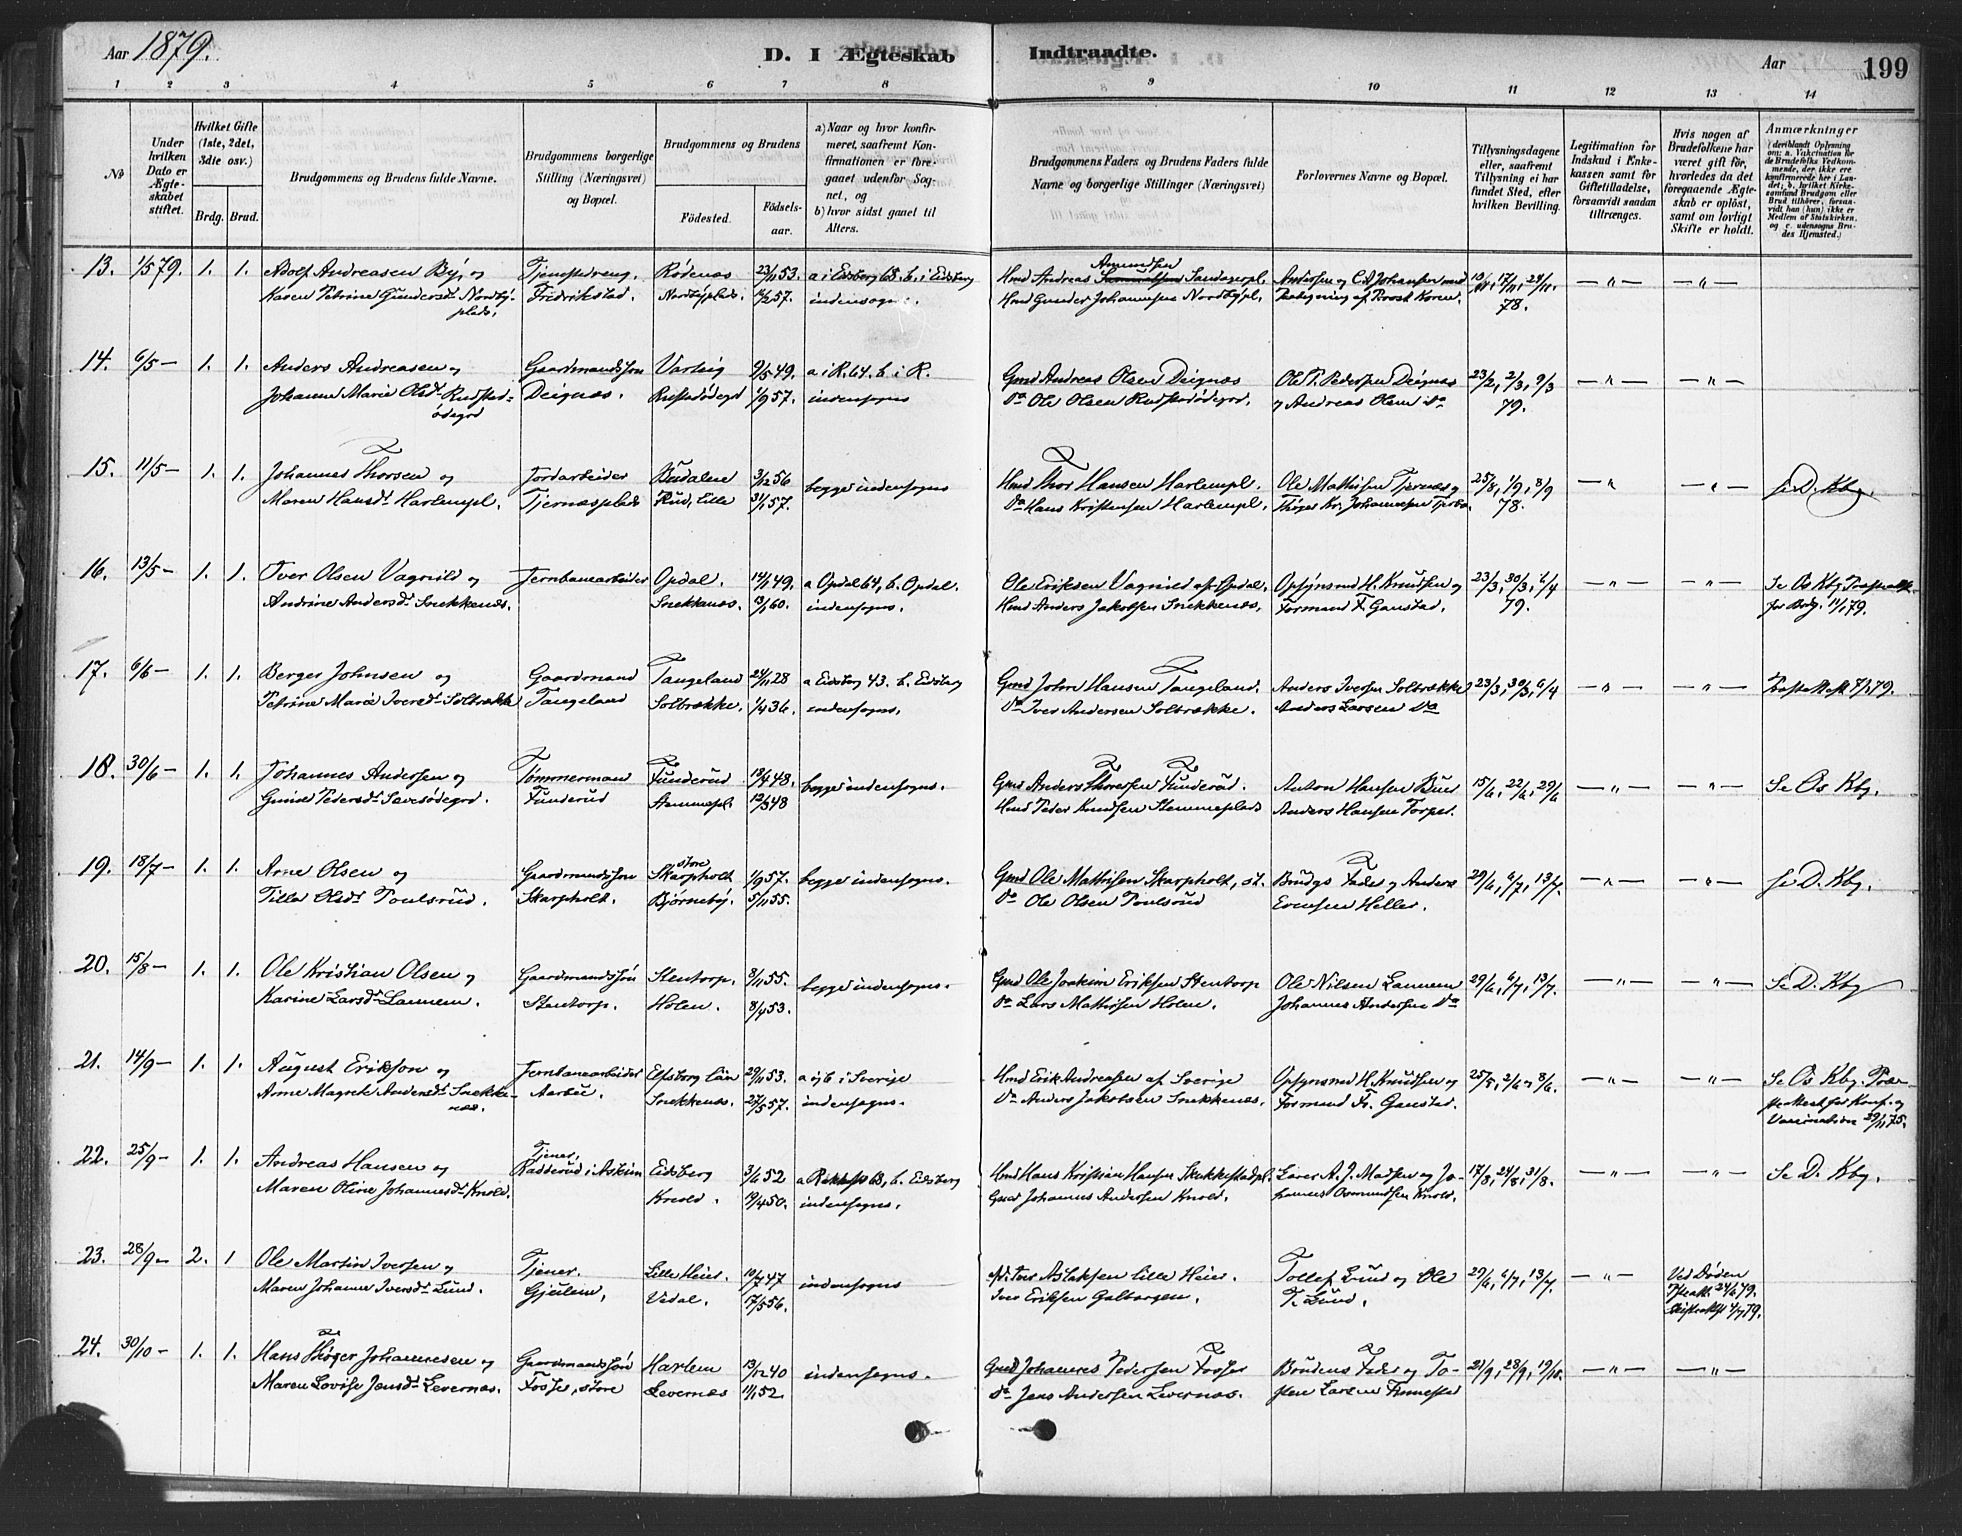 Aar 1879. D. I Ægteskab Indtraadte. Aar 199
1 2 3 4 5 6 7 8 9 10 11 12 13 14
No
Under hvilken Dato er Ægteskabet stiftet.
Hvilket Gifte (1ste, 2det, 3die osv.)
Brdg. Brud.
Brudgommens og Brudens fulde Navne.
Brudgommens borgerlige Stilling (Næringsvei) og Bopæl.
Brudgommens og Brudens
Fødested. Fødselsaar.
a) Naar og hvor konfirmeret, saafremt Konfirmationen er foregaaet udenfor Sognet, og
b) hvor sidst gaaet til Alters.
Brudgommens Faders og Brudens Faders fulde Navne og borgerlige Stillinger (Næringsvei)
Forlovernes Navne og Bopæl.
Tillysningsdagene eller, saafremt Tillysning ei har fundet Sted, efter hvilken Bevilling.
Legitimation for Indskud i Enkekassen samt for Giftetilladelse, forsaavidt saadan tiltrænges.
Hvis nogen af Brudefolkene har været gift før, hvorledes da det foregaaende Ægteskab er opløst, samt om lovligt Skifte er holdt.
Anmærkninger
13. 1/5 79. 1. 1. Adolf Andreasen By, og Tjenstedreng, Rødenæs 23/11 53. a i Eidsberg 68. b. i Eidsberg Hmd Andreas Amundsen Sandagerpl. Andersen og C. A. Johansen med 10/11, 17/11, 24/11. — " — — " —
Karen Petrine Gundersdt. Nordbyplads, Fredrikstad. Nordbyplads. 57. indensogns. Hmd Gunder Johannesen Nordbypl. Paategning af Provst Koren. 78.
14. 6/5 — 1. 1. Anders Andreasen og Gaardmandssøn Varteig 9/5 49. a i R. 64. b. i R. Gmd Andreas Olsen Deignæs Ole P. Pedersen Deignæs 23/2, 2/3, 9/3 — " — — " —
Johanne Marie Olsdt. Rudstadødegrd Deignæs. 1/9 57. indensogns Do Ole Olsen Rudstadødegrd. og Andreas Olsen Do 79.
15. 11/5 — 1. 1. Johannes Thorsen og Jordarbeider 3/12 56 begge indensogns Hmd Thor Hansen Harlempl. Ole Mathisen Tjernæs og 25/8, 1/9, 8/9 — " — " — se D. Kbg.
Maren Hansdt. Harlempl. Tjernæsplads Rud, Lille 31/1 57. Do Hans Kristensen Harlempl. Johannesen 78.
16. 13/5 — 1. 1. Iver Olsen Vagnild og Jernbanearbeider Opdal. 14/1 49. a Opdal 64, b. Opdal. Ole Eriksen Vagnild af Opdal. Opsynsmd H. Knudsen og 23/3, 30/3, 6/4 — " — — " — Se Os Kbg.
Andrine Andersdt. Snekkenæs. Snekkenæs. 13/1 60. indensogns. Hmd Anders Jakobsen Snekkenæs. Formand F. Ganstad. 79. for Brdg. 11/1 79.
17. 6/6 — 1. 1. Berger Johnsen og Gaardmand Tangeland 24/11 28 a Eidsberg 43. b. Eidsberg Gmd John Hansen Tangeland. Anders Iversen Solbrække 23/3, 30/3, 6/4 — " — — " —
Petrine Marie Iversdt. Solbrække Tangeland Solbrække. 1/4 36. indensogns. Do Iver Andersen Solbrække. Anders Larsen Do
18. 30/6 — 1. 1. Johannes Andersen og Tømmermand Funderud 48. begge indensogns. Gmd Anders Thoresen Funderud. Anton Hansen 15/6, 22/6, 29/6 — " — — " — Se Os Kbg.
Gunild Pedersdt. Funderud Stemmepl. 12/5 48 Hmd Peder Knudsen Stemmeplads Anders Hansen Torper.
19. 18/7 — 1. 1. Arne Olsen og Gaardmandssøn store Skarpholt 1/9 57. begge indensogns. Gmd Ole Mathisen Skarpholt, st. Brudgs Fader og Anders 29/6, 6/7, 13/7. — " — — " — se D. Kbg.
Tilla Olsdt. Poulsrud. Skarpholt. Bjørneby. 5/11 55. Do Ole Olsen Poulsrud Evensen Heller.
20. 15/8 — 1. 1. Ole Kristian Olsen og Gaardmandssøn Stentorp. 8/11 55. begge indensogns. Gmd Ole Joakim Eriksen Stentorp Ole Nilsen Lannem 29/6, 6/7, 13/7. — " — — " — Se D. Kbg
Karine Larsdt. Lannem. Stentorp. Holen. 8/4 53. Do Lars Mathisen Holen. Johannes Andersen Do
21. 14/9 — 1. 1. August Erikson og Jernbanearbeider Elfsborg Län 29/11 53. a og b i Sverige Hmd Erik Andreassen af Sverige Opsynsmd H. Knudsen og 25/5, 2/6, 8/6. — " — — " — Se Os Kbg.
Anne Magrete Andersdt. Snekkenæs. Snekkenæs. 27/5 57. indensogns. Do Anders Jakobsen Snekkenæs. Formand Fr. Ganstad. for Konf. og Vaccination 29/11 75.
22. 25/9 — 1. 1. Andreas Hansen og Tjener, Radderud i Askim Eidsberg 3/6 52 a 68, b. Eidsberg Hmd Hans Kristian Hansen Lærer A. J. Madsen og Jo- 17/8, 24/8, 31/8. — " — — " — Se D. Kbg.
Maren Oline Johannesdt. Knold. Knold. 19/4 50. indensogns. Gmd Johannes Andersen Knold. hannes Osmundsen Knold.
23. 28/9 — 2. 1 Ole Martin Iversen og Tjener. Lille Heier. 10/7 47 indensogns Iver Aslaksen Lille Heier. Tollef Lund og Ole 29/6, 6/7, 13/7. — " — Ved Døden 24/6 79.
Maren Johanne Iversdt. Lund. Gjeilem, Vedal. 17/5 56. Iver Eriksen Galborgen. T. Lund. Skifteattest 4/7 79.
24. 30/10 — 1. 1. Hans Thøger Johannesen og Gaardmandssøn Harlem 13/12 40 indensogns. Gmd Johannes Pedersen Fosser Brudens Fader og To- 21/9, 28/9, 19/10. — " — — " —
Maren Lovise Jensdt. Levernæs. Fosser, store Levernæs 1/1 52. Do Jens Andersen Levernæs. sten Larsen Finnestad